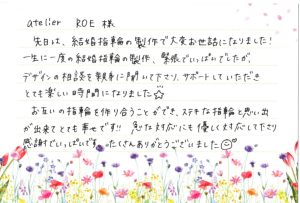 atelier ROE 様
先日は、結婚指輪の製作で大変お世話になりました!
一生に一度の結婚指輪の製作、緊張でいっぱいでしたが、
デザインの相談を親身に聞いて下さり、サポートしていただき
とても楽しい時間になりました☆
お互いの指輪を作り合うことができ、ステキな指輪と思い出
が出来てとても幸せです!! 急な対応にも優しく対応して下さり
感謝でいっぱいです。たくさんありがとうございました☺